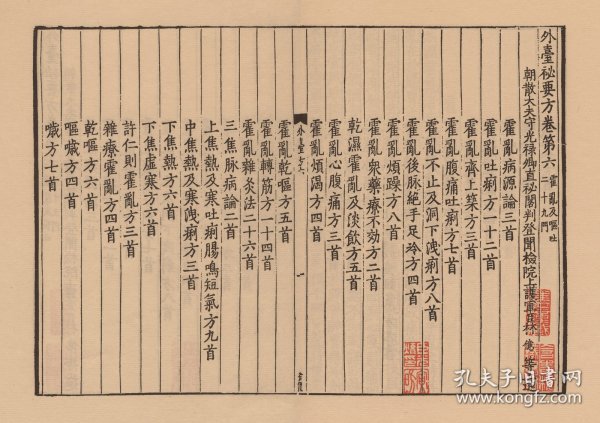 外臺祕要方卷第六 霍亂及嘔吐
十九門
朝散大夫守光祿卿直祕閣判登聞檢院上護軍臣林億等
霍亂病源論三首
霍亂吐痢方一十二首
霍亂臍上築方三首
霍亂腹痛吐痢方七首
霍亂不止及洞下洩痢方八首
霍亂後脉絕手足冷方四首
霍亂煩躁方八首
霍亂衆藥療不効方二首
乾濕霍亂及淡飲方五首
霍亂心腹痛方三首
霍亂煩渴方四首
外臺六
一
霍亂乾嘔方五首
霍亂轉筋方一十四首
霍亂雜灸法二十六首
三焦脉病論二首
上焦熱及寒吐痢腸鳴短氣方九首
中焦熱及寒洩痢方三首
下焦熱方六首
下焦虛寒方六首
許仁則霍亂方三首
雜療霍亂方四首
乾嘔方六首
嘔噦方四首
噦方七首
孔夫子旧书网
www.kongfz.com